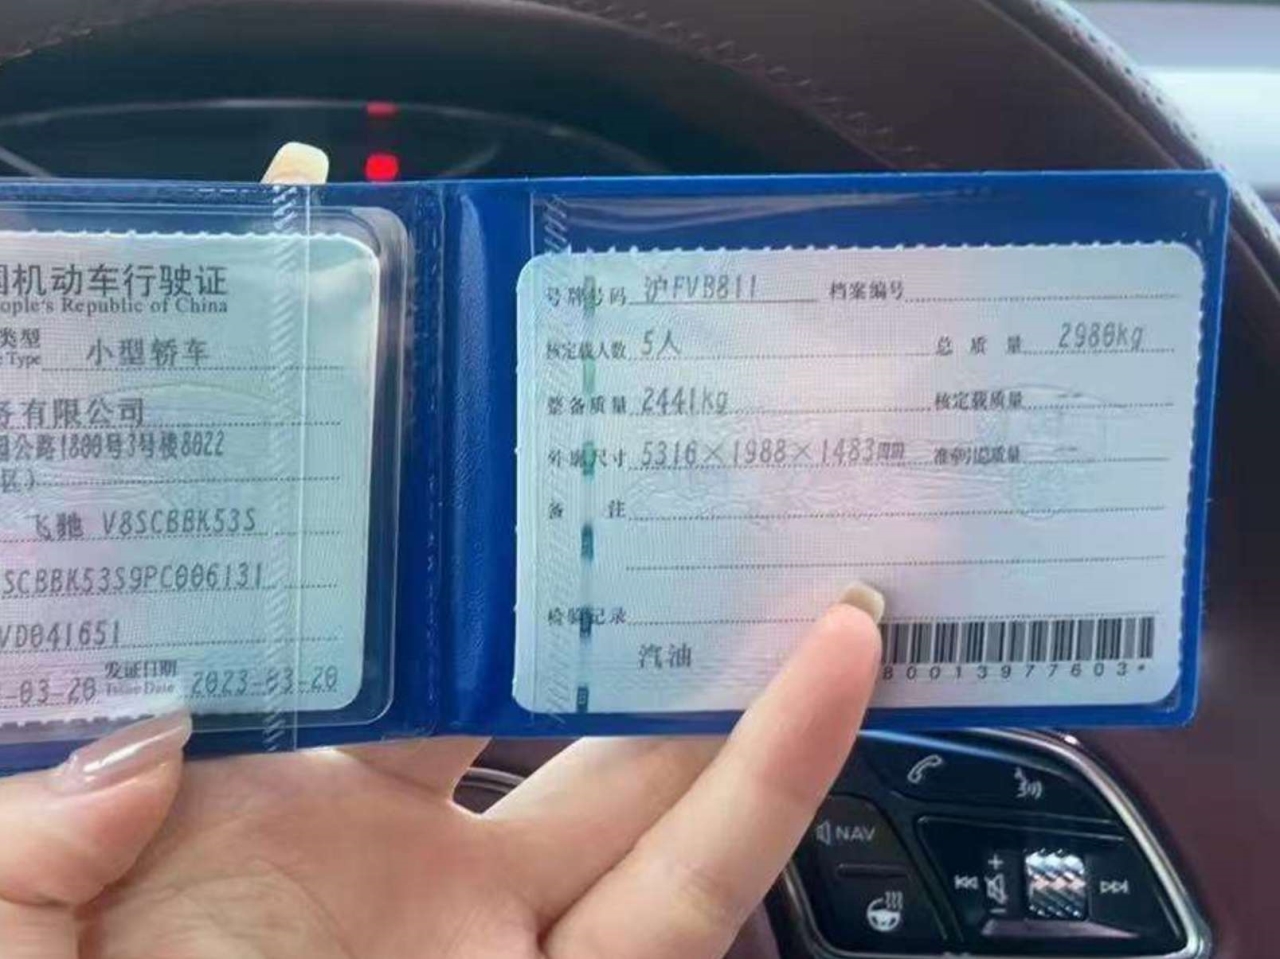 国机动车行驶证
ople's Republic of China
类型 小型轿车
Type
务有限公司
公路1800号3号楼8022
区)
飞驰 V8SCBBK53S
SCBBK53S9PC006131
VD041651
-03-20 发证日期 2023-03-20
Issue Date
号牌号码 沪FVB811 档案编号
核定载人数 5人 总质量 2980kg
整备质量 2441kg 核定载质量 --
外廓尺寸 5316×1988×1483mm 准牵引总质量 --
备注
检验记录
汽油
80013977603*
NAV